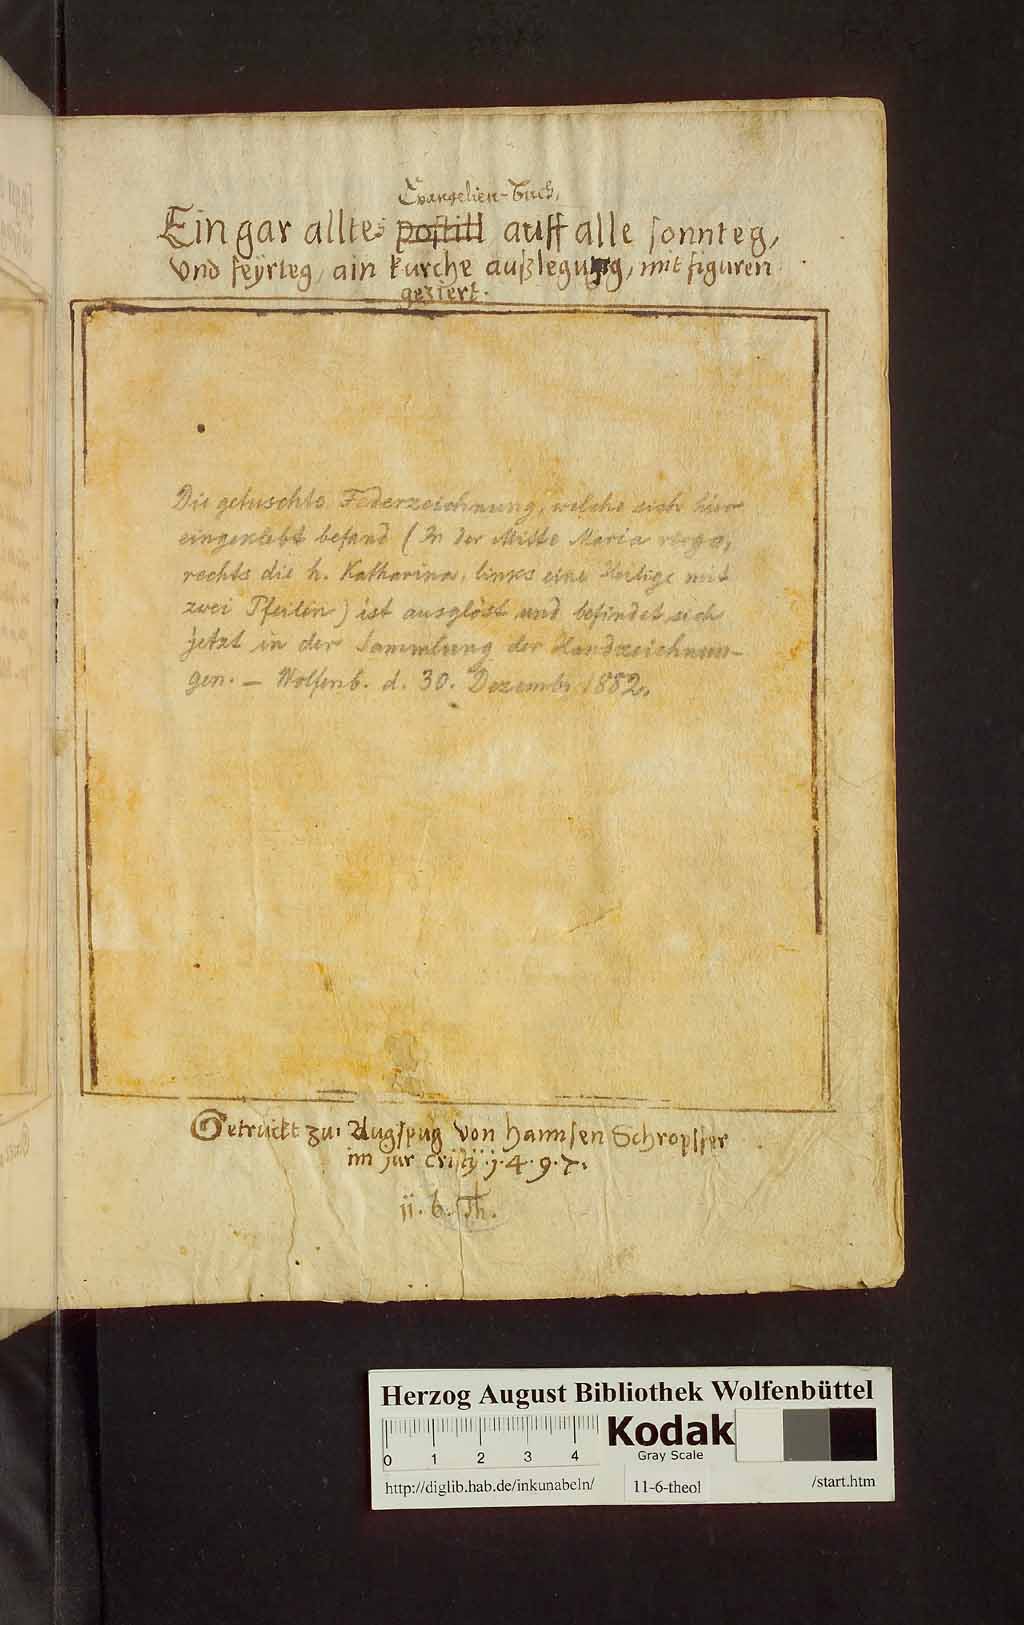 Evangelien-Buch,
Ein gar alltes postill auff alle sonnteg,
vnd feÿrteg, ain kurche außlegung, mit figuren
geziert.
Die getuschte Federzeichnung, welche sich hier
eingeklebt befand (In der Mitte Maria virgo,
rechts die h. Katharina, links eine Heilige mit
zwei Pfeilen) ist ausgelöst und befindet sich
jetzt in der Sammlung der Handzeichnun-
gen. — Wolfenb. d. 30. Dezemb. 1882.
Getruckt zu Augspug von hannsen Schropffer
im jar cristÿ .j.4.9.7.
ij. 6. Th.
Herzog August Bibliothek Wolfenbüttel
0 1 2 3 4
Kodak
Gray Scale
http://diglib.hab.de/inkunabeln/ 11-6-theol /start.htm